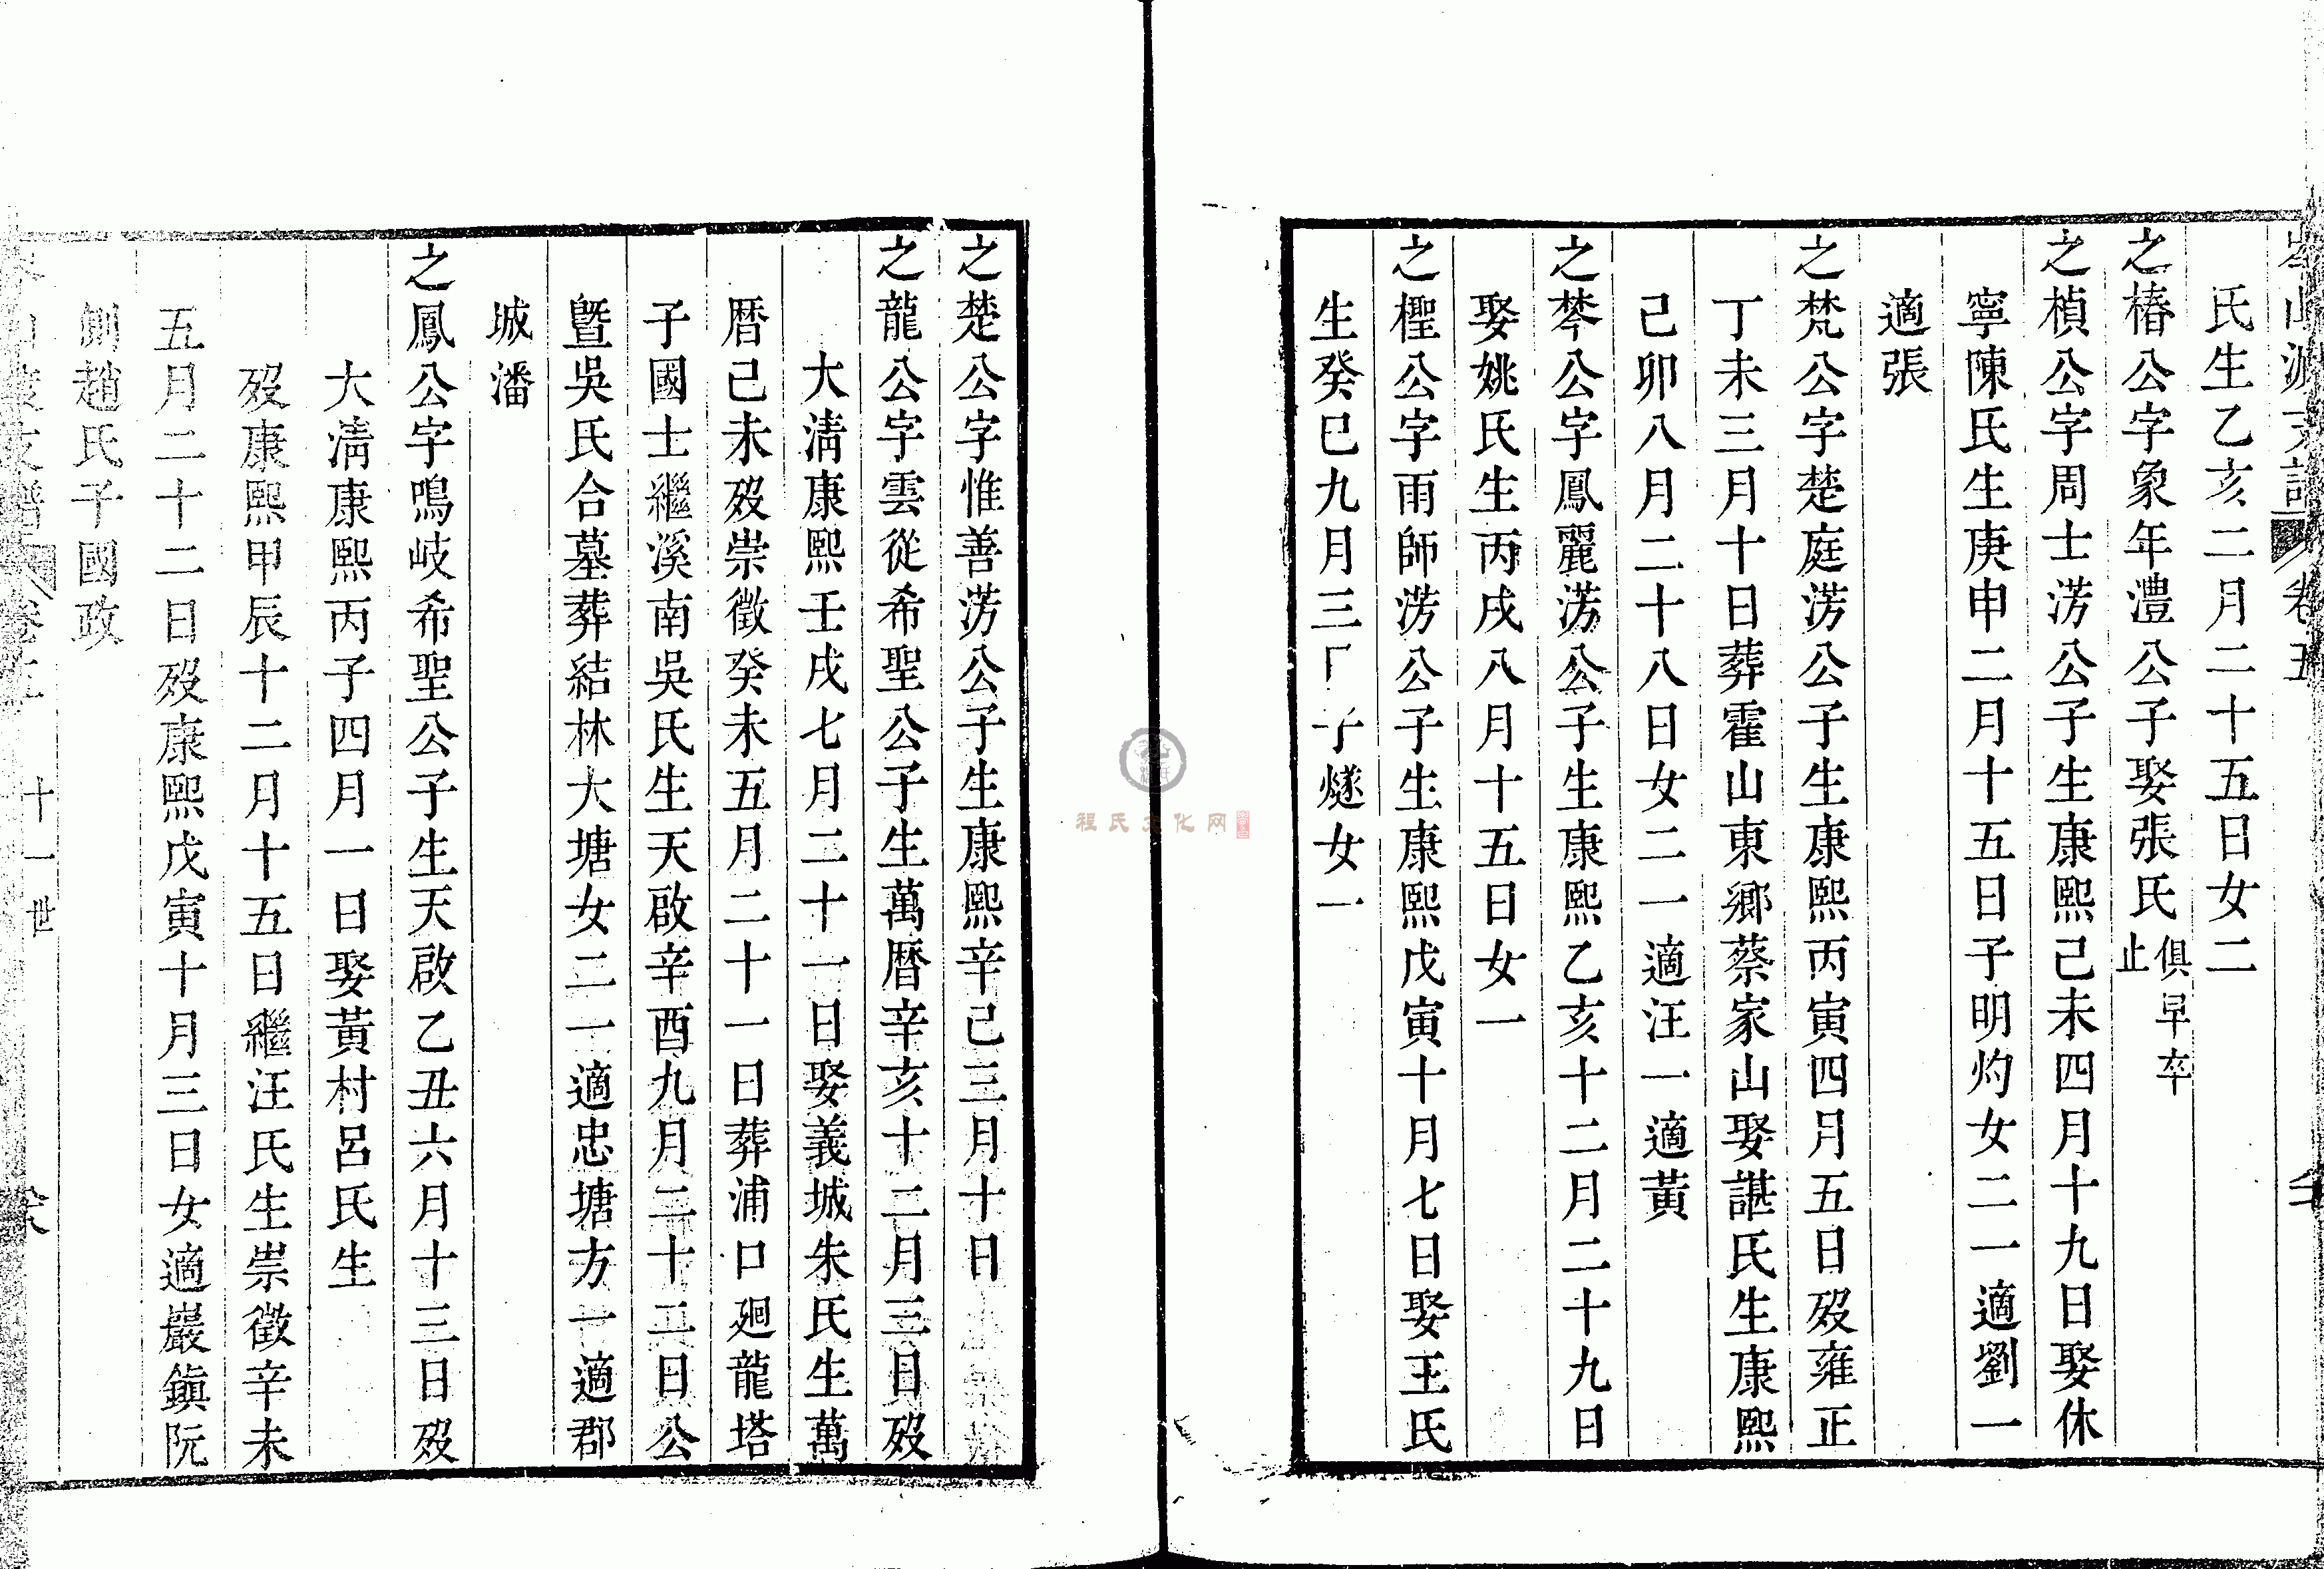 岑山渡支譜 卷五
氏生乙亥二月二十五日女二
之椿公字象年澧公子娶張氏俱早卒止
之楨公字周士淓公子生康熙己未四月十九日娶休
寧陳氏生庚申二月十五日子明灼女二一適劉一
適張
之梵公字楚庭淓公子生康熙丙寅四月五日歿雍正
丁未三月十日葬霍山東鄉蔡家山娶諶氏生康熙
己卯八月二十八日女二一適汪一適黃
之棽公字鳳麗淓公子生康熙乙亥十二月二十九日
娶姚氏生丙戌八月十五日女一
之檉公字雨師淓公子生康熙戊寅十月七日娶王氏
生癸巳九月三 子燧女一
之楚公字惟善淓公子生康熙辛巳三月十日
之龍公字雲從希聖公子生萬曆辛亥十二月三日歿
大淸康熙壬戌七月二十一日娶義城朱氏生萬
曆己未歿崇徵癸未五月二十一日葬浦口廻龍塔
子國士繼溪南吳氏生天啟辛酉九月二十二日公
曁吳氏合墓葬結林大塘女二一適忠塘方一適郡
城潘
之鳳公字鳴岐希聖公子生天啟乙丑六月十三日歿
大淸康熙丙子四月一日娶黃村呂氏生
歿康熙甲辰十二月十五日繼汪氏生崇徵辛未
五月二十二日歿康熙戊寅十月三日女適巖鎭阮
側趙氏子國政
支譜 卷五 十一世
程氏文化网